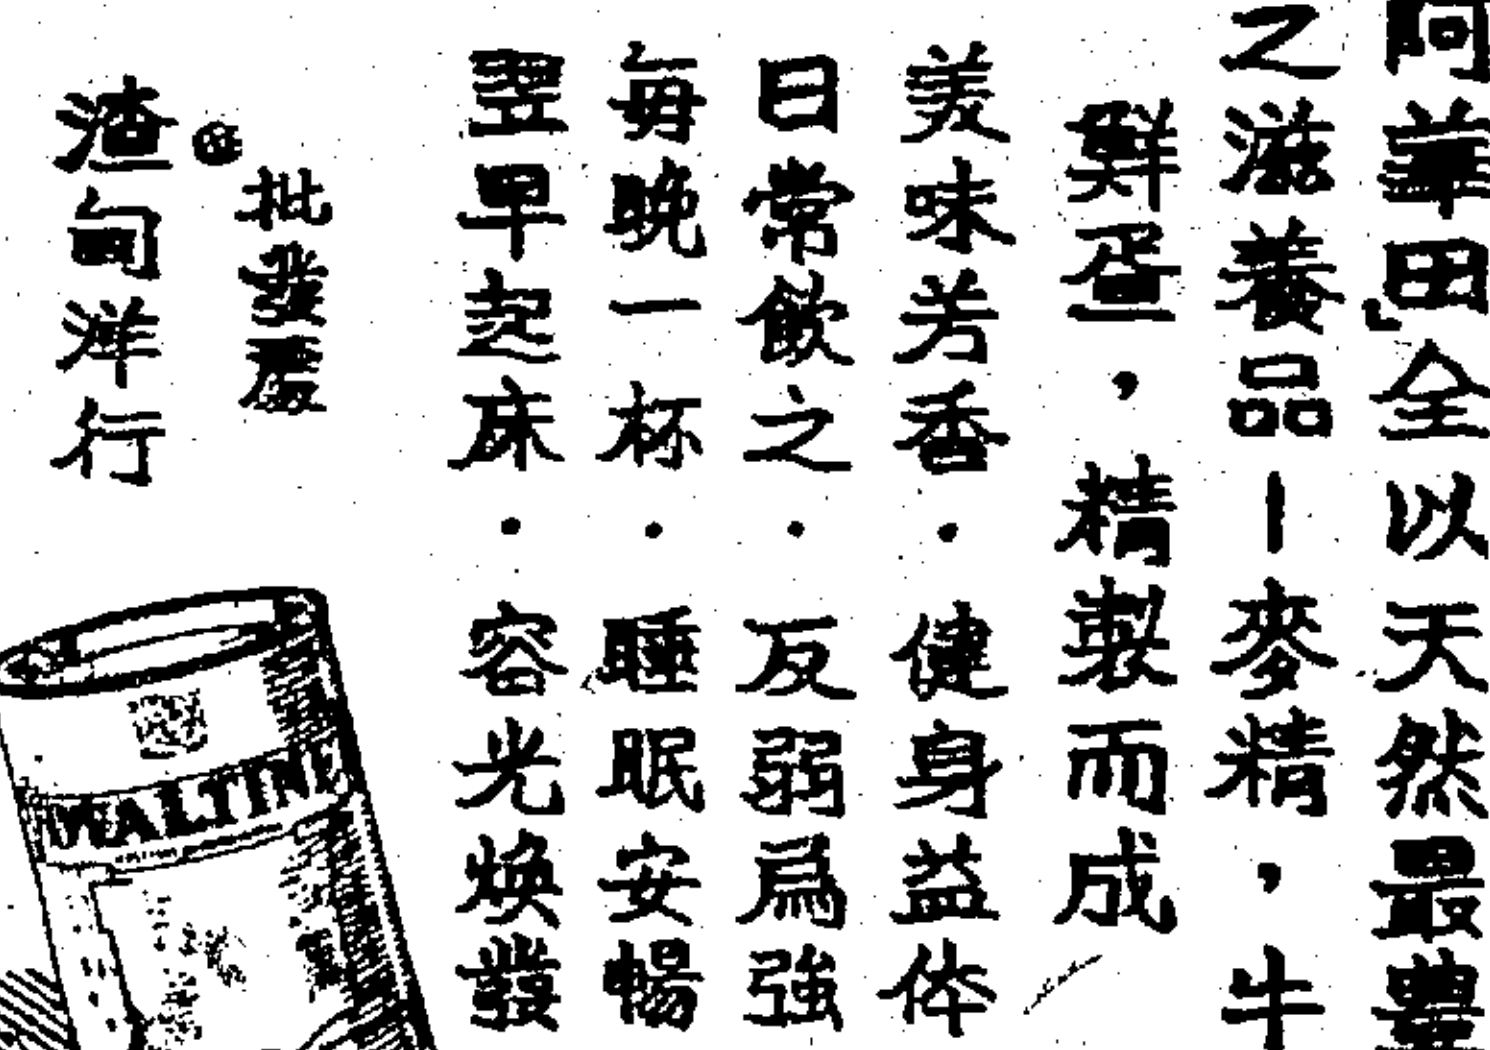 阿華田」全以天然最豐
之滋養品－麥精，牛
鮮蛋，精製而成
美味芳香．健身益体
日常飲之．反弱爲強
每晚一杯．睡眠安暢
翌早起床．容光煥發
批發處
渣甸洋行
OVALTINE